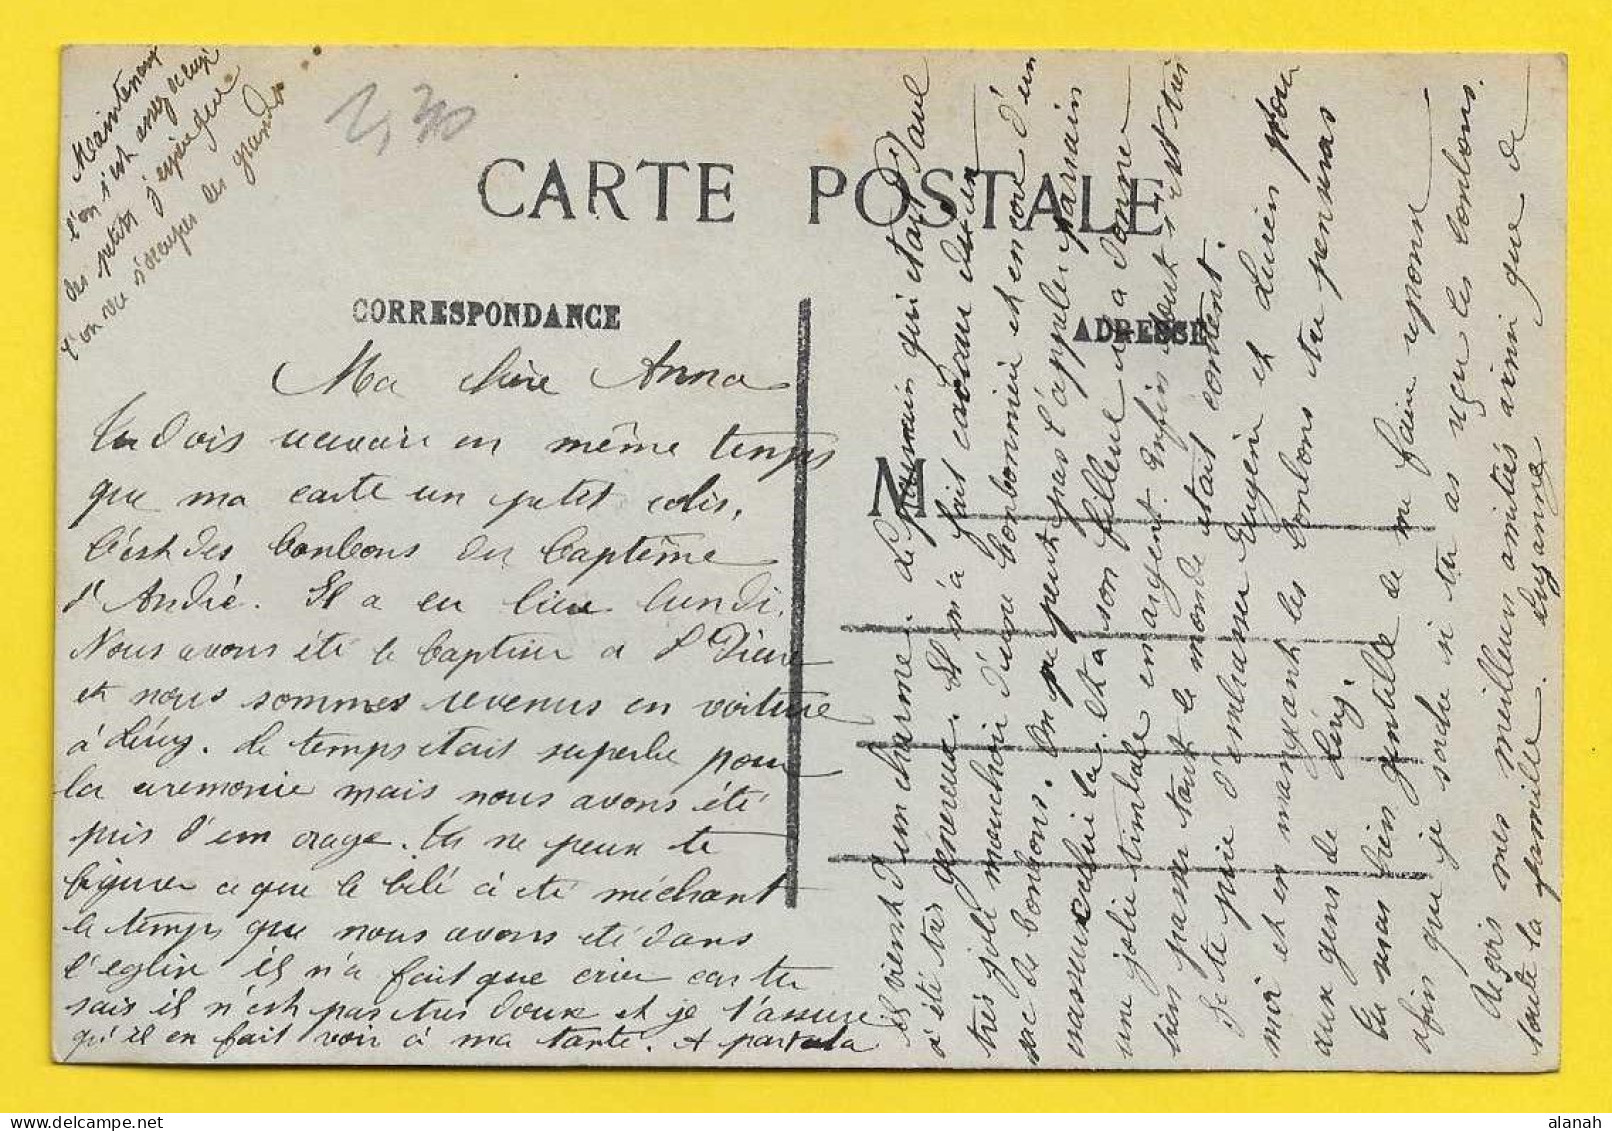 Maintenant
l'on s'est assez occupé
des petits
l'on va s'occuper des grands
1,30
CARTE POSTALE
CORRESPONDANCE
ADRESSE
M
Ma chère Anna
Tu dois recevoir en même temps
que ma carte un petit colis.
C'est des bonbons du baptême
d'André. Il a eu lieu lundi.
Nous avons été le baptiser a St Pierre
et nous sommes revenus en voiture
à Lévy. Le temps etait superbe pour
la ceremonie mais nous avons été
pris d'un orage. Tu ne peux te
figurer ce que le bébé à été méchant
le temps que nous avons été dans
l'eglise il n'a fait que crier car tu
sais il n'est pas tres doux et je t'assure
qu'il en fait voir à ma tante. A part cela
il vient d'un charme. Le parrain qui etait Paul
a été très genereux. Il m'a fait cadeau d'un
très joli mouchoir d'une bonbonnière et encore d'un
sac de bonbons. On ne peut pas l'appeler parrain
celui la. Et a son filleul il a donné
une jolie timbale en argent. Enfin tout s'est très
bien passé tout le monde etait content.
Je te prie d'embrasser Eugène et Lucien pour
moi et en mangeant les bonbons tu penseras
aux gens de Lévy.
Tu seras bien gentille de me faire reponse
afin que je sache si tu as reçu les bonbons.
Reçois mes meilleurs amitiés ainsi que de
toute la famille. Suzanne
alanah
www.delcampe.net